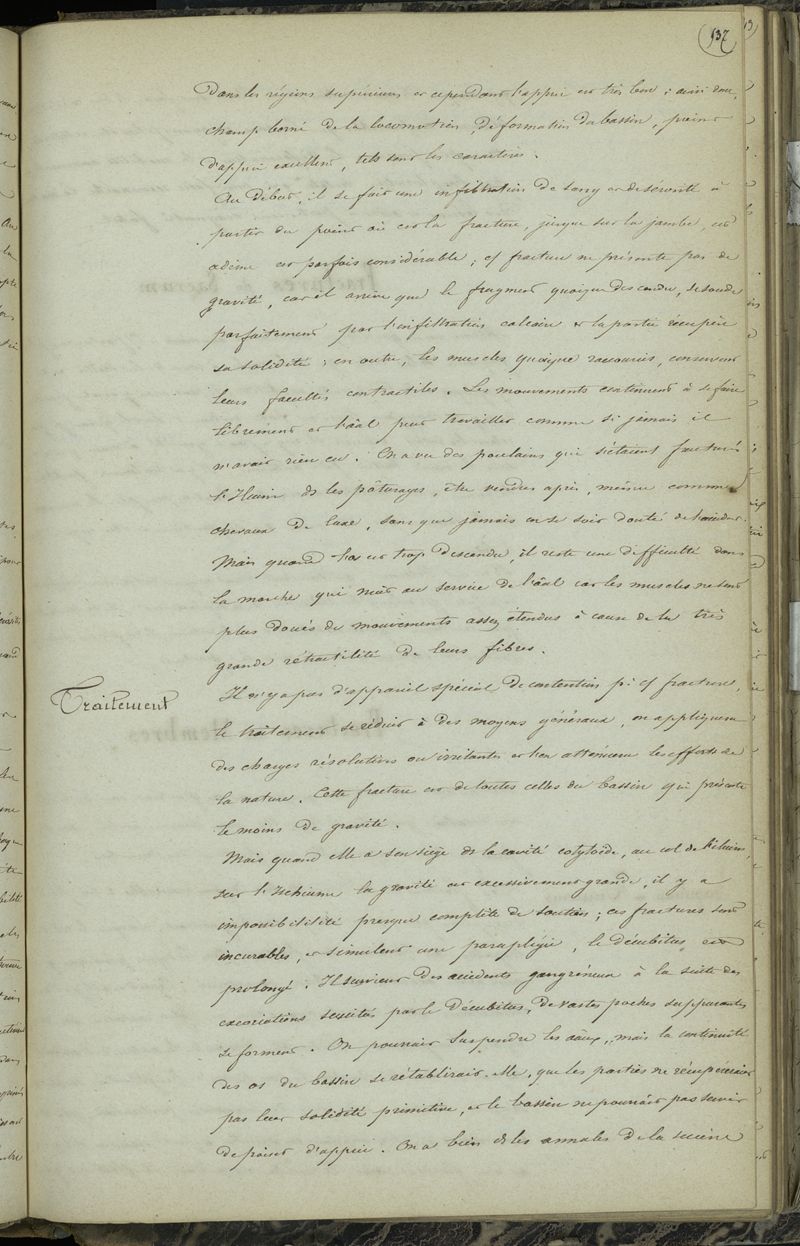 137
Dans les régions supérieures et cependant l'appui est très bon ; ainsi donc,
champ borné de la locomotion, déformation du bassin, point
d'appui excellent, tels sont les caractères.
Au début, il se fait une infiltration de sang et de sérosité à
partir du point où est la fracture, jusque sur la jambe, cet
œdème est parfois considérable ; cs fracture ne présente pas de
gravité, car il arrive que le fragment quoique descendu, se soude
parfaitement par l'infiltration calcaire et la partie récupère
sa solidité ; en outre, les muscles quoique raccourcis, conservent
leurs facultés contractiles. Les mouvements continuent à se faire
librement et l'âal peut travailler comme si jamais il
n'avait rien eu. On a vu des poulains qui s'étaient fracturé
l'Ilium ds les pâturages, être vendus après, même comme
chevaux de luxe, sans que jamais on se soit douté de
Mais quand l'os est trop descendu, il reste une difficulté dans
la marche qui nuit au service de l'âal car les muscles ne sont
plus doués de mouvements assez étendus à cause de la très
grande rétractilité de leurs fibres.
Traitement
Il n'y a pas d'appareil spécial de contention pr cs fracture,
le traitement se réduit à des moyens généraux, on appliquera
des charges résolutives ou irritantes et l'on attendra les efforts de
la nature. Cette fracture est de toutes celles du bassin qui présente
le moins de gravité.
Mais quand elle a son siège ds la cavité cotyloïde, au col de l'ilium,
sur l'Ischium la gravité est excessivement grande, il y a
impossibilité presque complète de soutien ; ces fractures sont
incurables, et simulent une paraplégie, le décubitus est
prolongé. Il survient des accidents gangréneux à la suite des
excoriations suscitées par le décubitus, de vastes poches suppurantes
se forment. On pourrait suspendre les âaux, mais la continuité
des os du bassin se rétablirait-elle, que les parties ne récupéreraient
pas leur solidité primitive, et le bassin ne pourrait pas servir
de point d'appui. On a bien ds les annales de la science